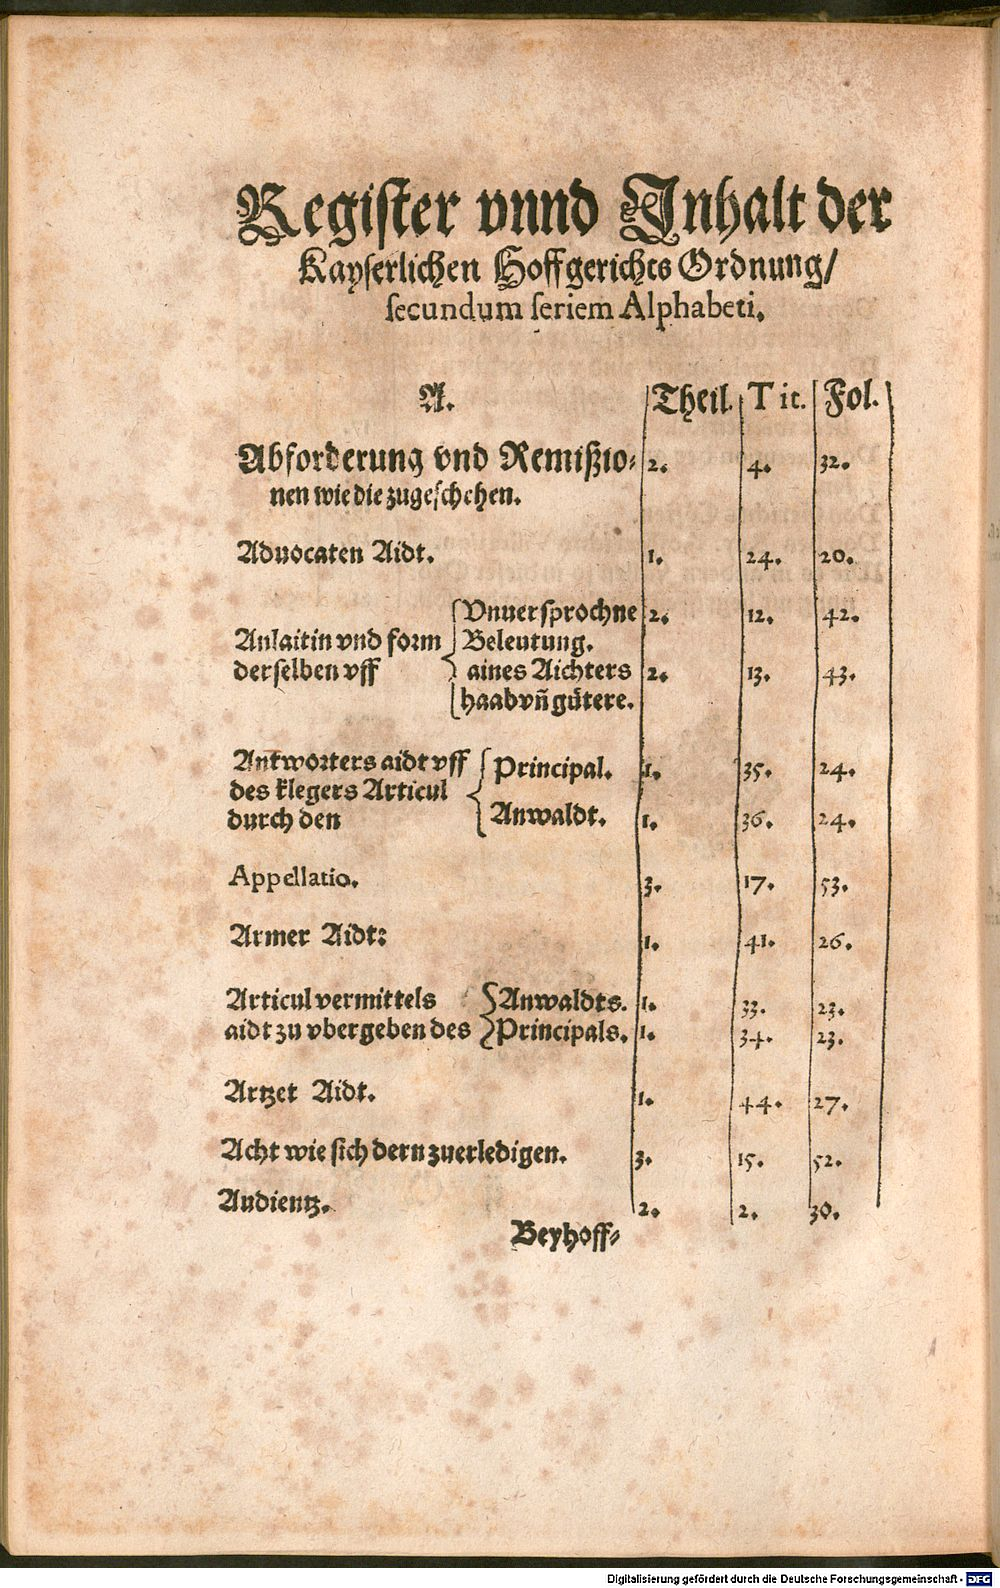 Register vnnd Jnhalt der
Kayserlichen Hoffgerichts Ordnung/
secundum seriem Alphabeti.
A. Theil. Tit. Fol.
Abforderung vnd Remißio- 2. 4. 32.
nen wie die zugeschehen.
Aduocaten Aidt. 1. 24. 20.
Vnuersprochne 2. 12. 42.
Anlaitin vnd form Beleutung.
derselben vff aines Aichters 2. 13. 43.
haab vñ gütere.
Antworters aidt vff Principal. 1. 35. 24.
des klegers Articul
durch den Anwaldt. 1. 36. 24.
Appellatio. 3. 17. 53.
Armer Aidt: 1. 41. 26.
Articul vermittels Anwaldts. 1. 33. 23.
aidt zu vbergeben des Principals. 1. 34. 23.
Artzet Aidt. 1. 44. 27.
Acht wie sich dern zuerledigen. 3. 15. 52.
Audientz. 2. 2. 30.
Beyhoff-
Digitalisierung gefördert durch die Deutsche Forschungsgemeinschaft - DFG